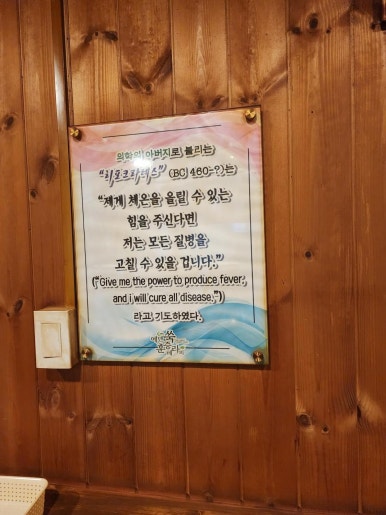 의학의 아버지로 불리는
"히포크라테스" (BC 460-?)는
"제게 체온을 올릴 수 있는
힘을 주신다면
저는 모든 질병을
고칠 수 있을 겁니다."
("Give me the power to produce fever,
and i will cure all disease,"))
라고! 기도하였다.